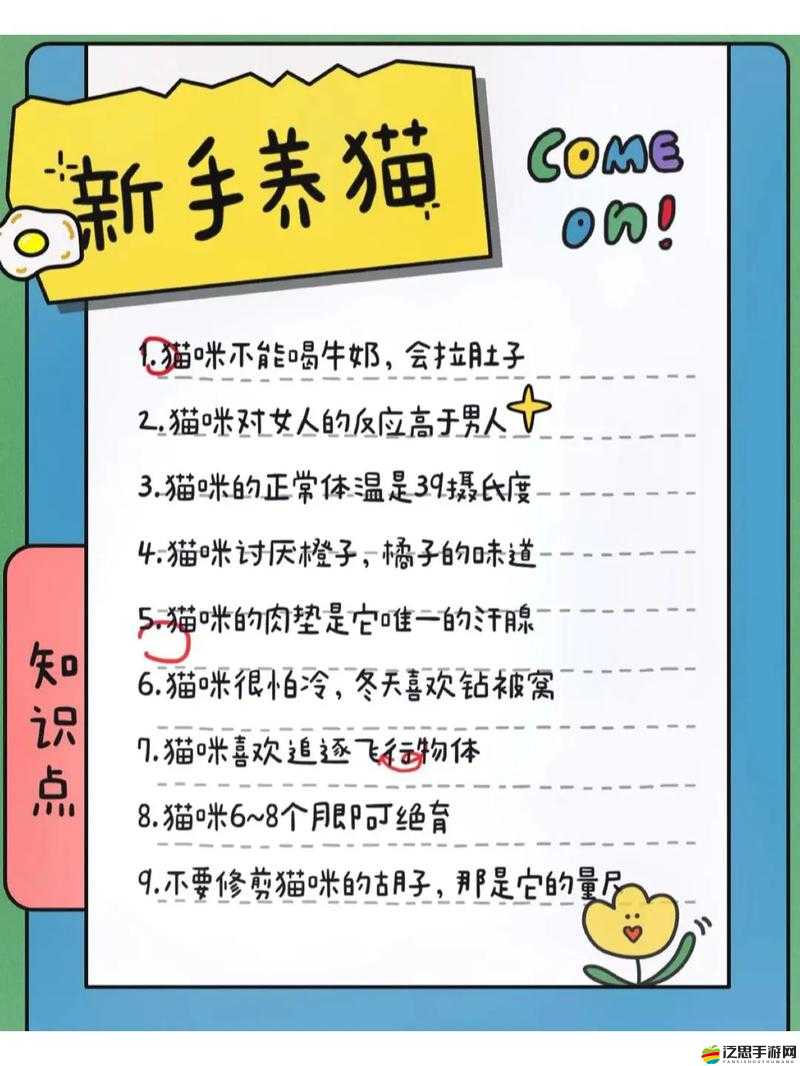 新手养猫
COME
ON!
1.猫咪不能喝牛奶,会拉肚子
2.猫咪对女人的反应高于男人
3.猫咪的正常体温是39摄氏度
4.猫咪讨厌橙子,橘子的味道
5.猫咪的肉垫是它唯一的汗腺
6.猫咪很怕冷,冬天喜欢钻被窝
7.猫咪喜欢追逐飞行物体
8.猫咪6~8个月即可绝育
9.不要修剪猫咪的胡子,那是它的量尺
知识点
泛思手游网
FANSISHOUYOUWANG